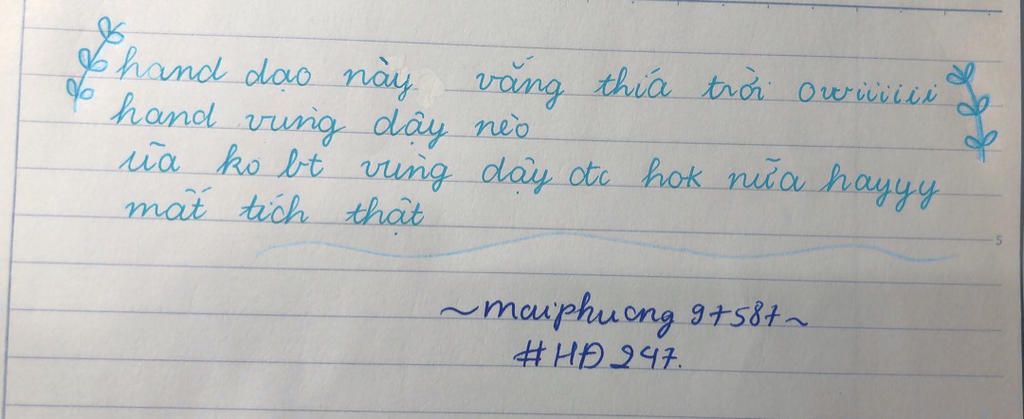 hand dạo này vắng thía trời owiiiiii
hand vùng dậy nèo
ùa ko bt vùng dậy đc hok nữa hayyy
mất tích thật
5
~maiphuong 97587~
#HĐ247.